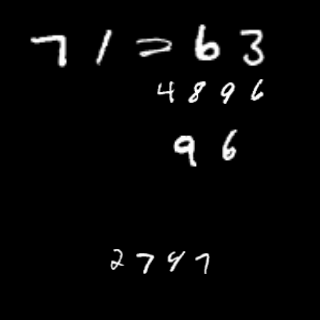 7 1 = 6 3
4 8 9 6
9 6
2 7 4 7